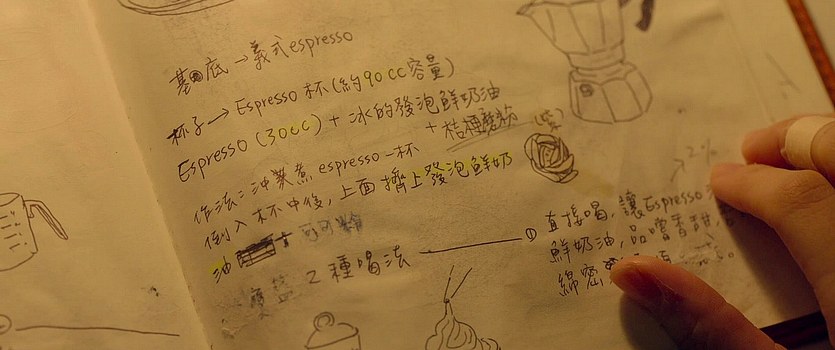 基底→義式espresso
杯子→Espresso杯(約90cc容量)
Espresso(30cc)+冰的發泡鮮奶油
+桔梗磨粉(紫)
作法:沖業煮espresso一杯
倒入杯中後,上面擠上發泡鮮奶
油 可可粉
2種喝法
① 直接喝,讓Espresso
鮮奶油,品嚐香甜,
綿密
2%